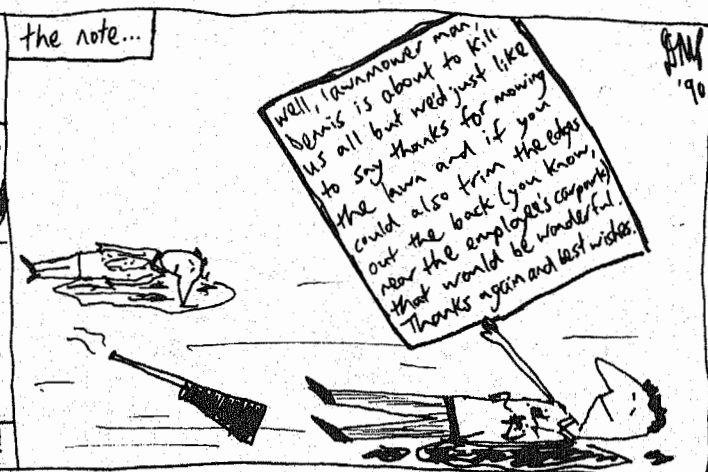 the note...
well, lawnmower man,
Dennis is about to kill
us all but we'd just like
to say thanks for mowing
the lawn and if you
could also trim the edges
out the back (you know,
near the employee's carpark)
that would be wonderful.
Thanks again and best wishes.
'90